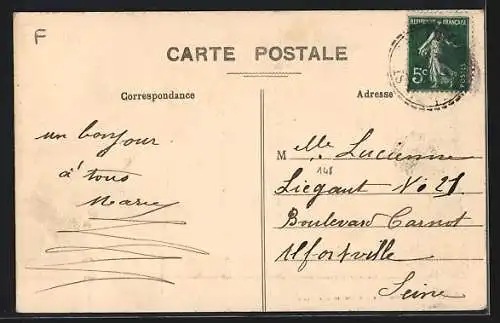 F
CARTE POSTALE
REPUBLIQUE FRANÇAISE
5c
POSTES
Correspondance
Adresse
un bonjour
à tous
Marie
Melle Lucienne
148
Liegaut No 21
Boulevard Carnot
Alfortville
Seine